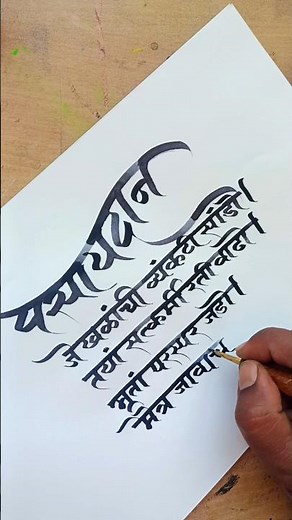 पसायदान
जे खळांची व्यंकटी सांडो।
तयां सत्कर्मी रती वाढो।
भूतां परस्पर जडो।
मैत्र जीवाचे